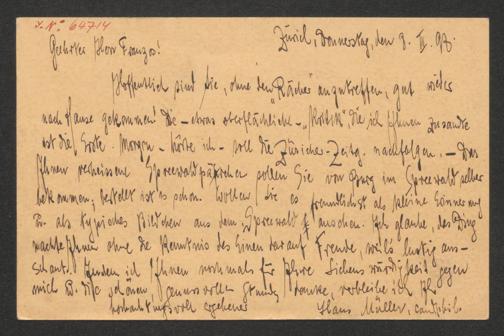 J. N. 64714
Zürich, Donnerstag, den 9. II. 97.
Geehrter Herr Franzos!
Hoffentlich sind Sie, ohne den "Rächer" anzutreffen, gut wieder
nach Hause gekommen! Die – etwas oberflächliche – "Kritik" die ich Ihnen zusandte
ist die Erste. Morgen – hörte ich – soll die Züricher Zeitg. nachfolgen. – Das
Ihnen verheissene Spreewaldpärchen sollen Sie von Burg im Spreewald selber
bekommen; bestellt ist es schon. Wollen Sie es freundlichst als kleine Erinnerung
u. als typisches Bildchen aus dem Spreewald anschen. Ich glaube, das Ding
macht Ihnen ohne die Kenntnis des Sinnes darauf Freude, weils lustig aus-
schaut. Indem ich Ihnen nochmals für Ihre Liebenswürdigkeit gegen
mich u. die schönen, genussvollen Stunden danke, verbleibe ich Ihr
hochachtungsvoll ergebener Hans Müller, cand. phil.